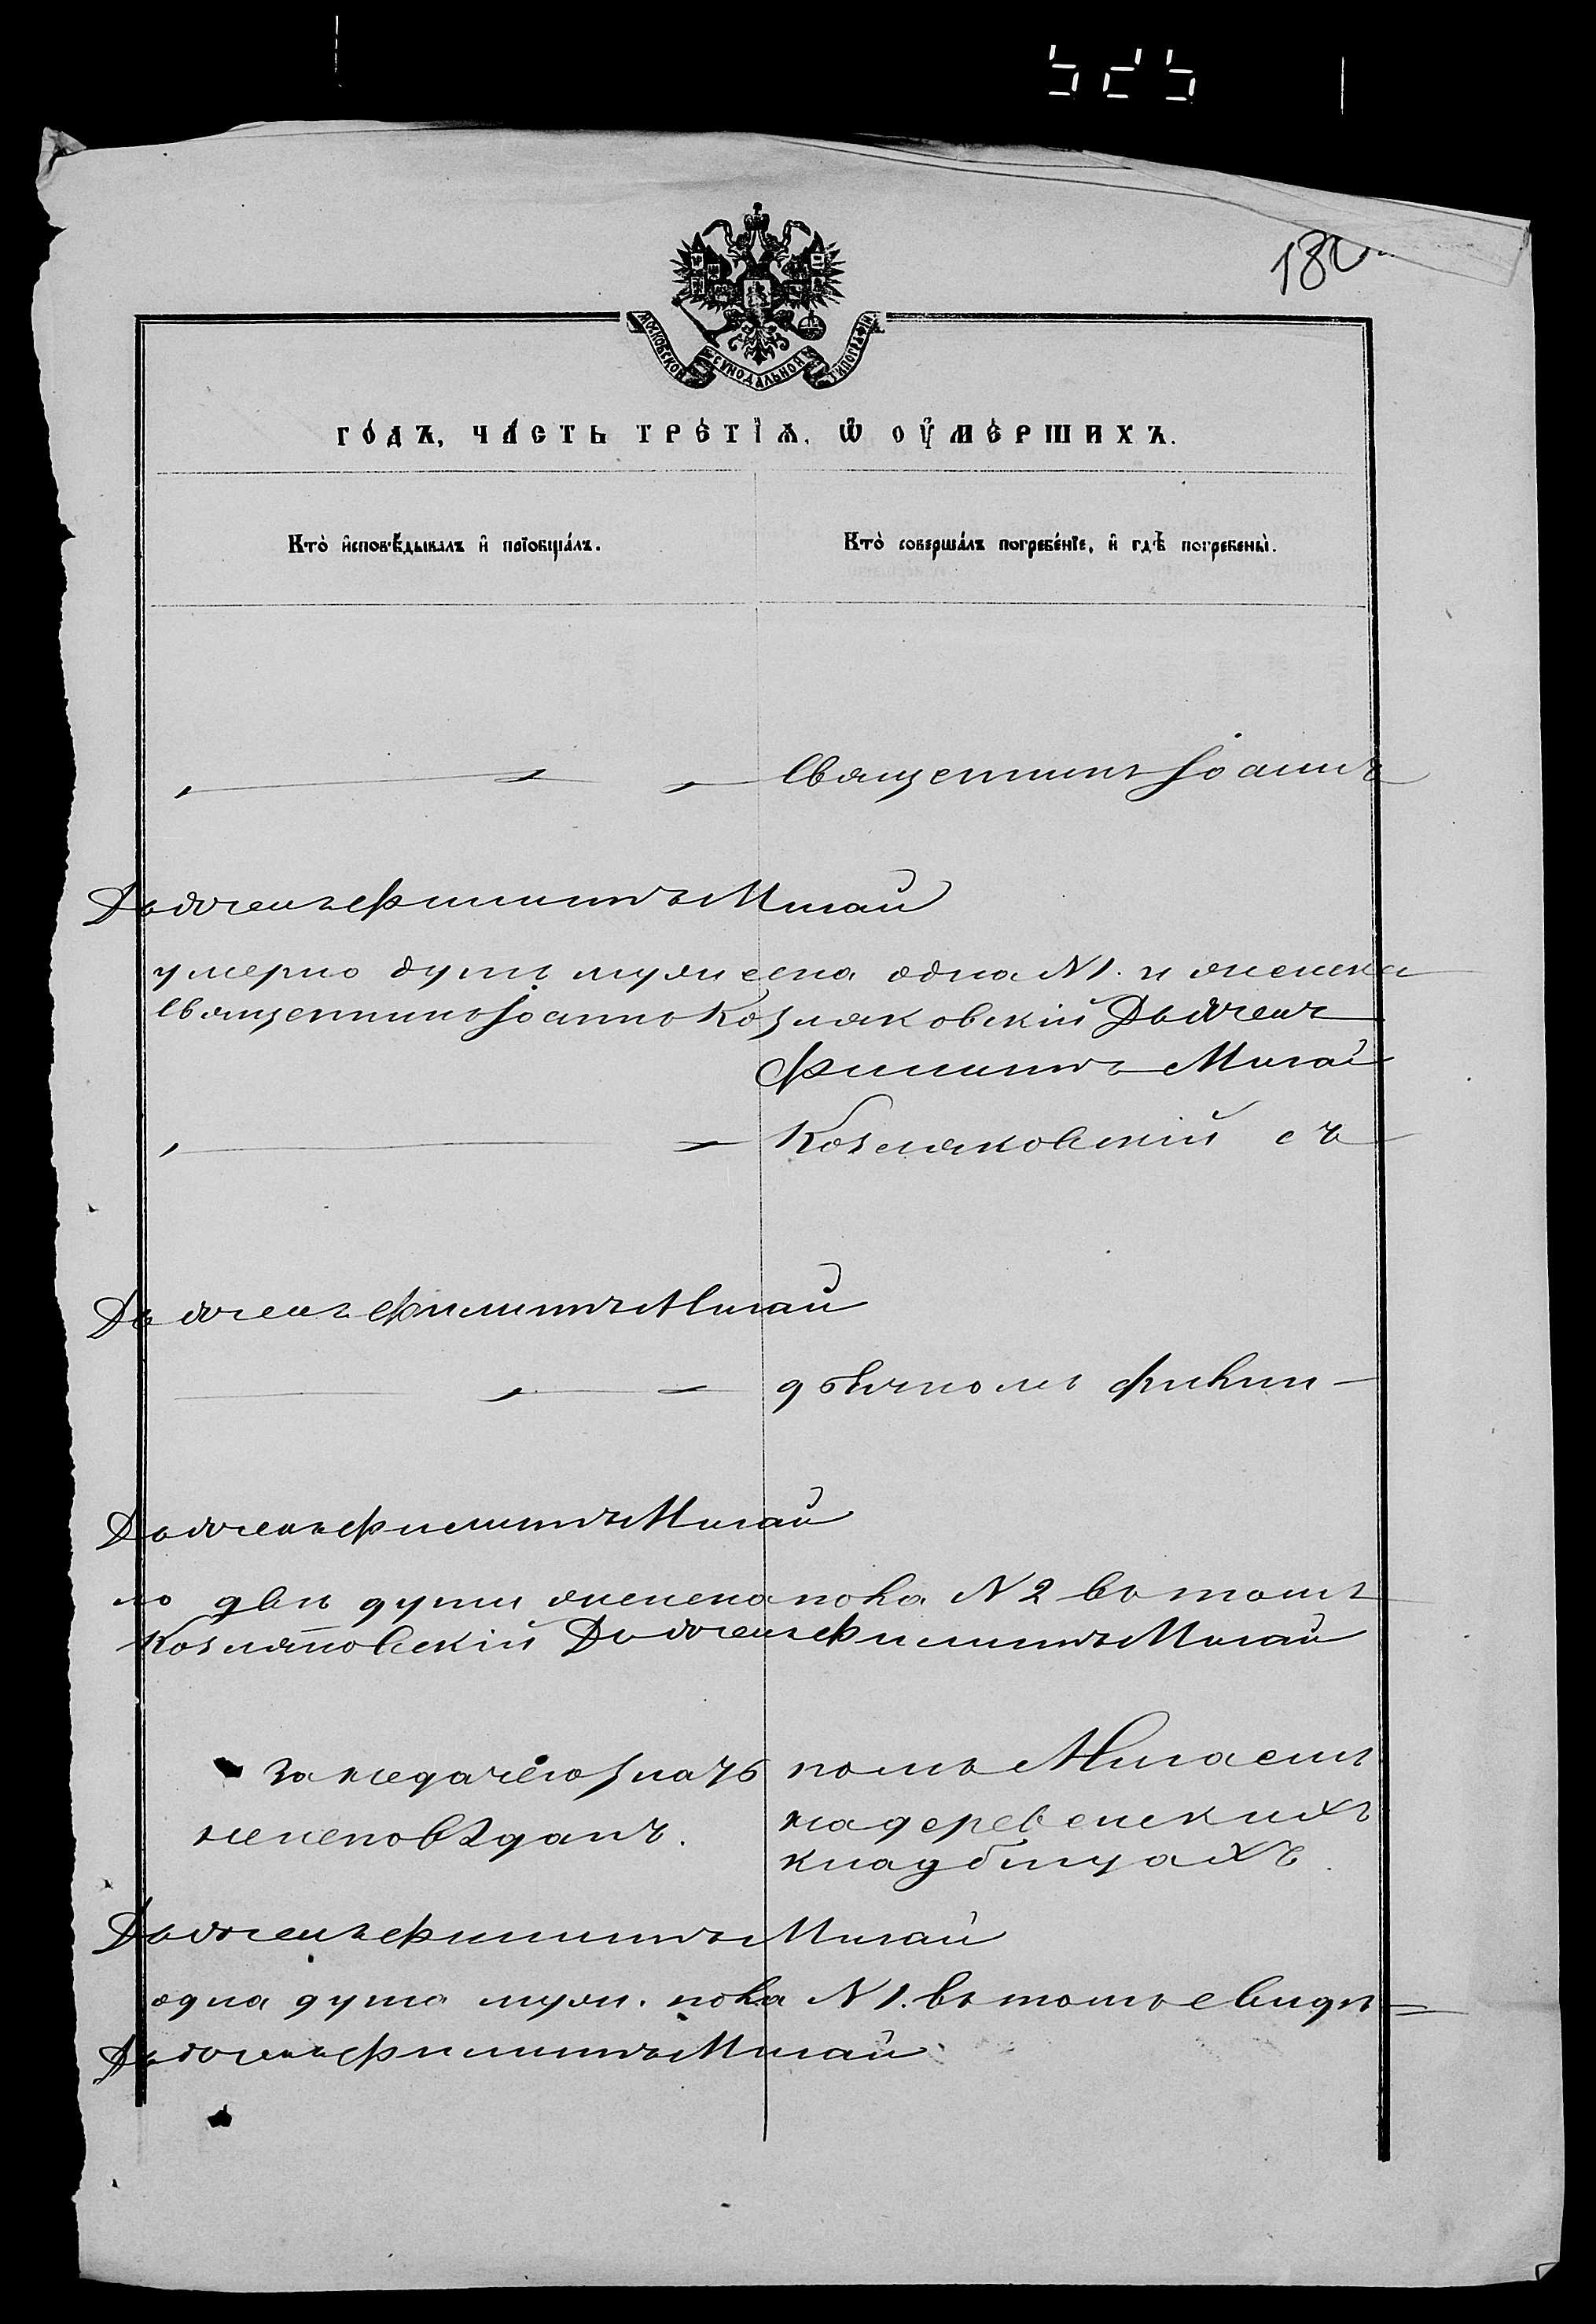 525
180
МОСКОВСКОЙ СѴНОДАЛЬНОЙ ТИПОГРАФІИ
ГО́ДЪ, ЧА́СТЬ ТРЕ́ТІѦ, Ѡ҆ ОУ҆МЕ́РШИХЪ.
Кто̀ и҆сповѣ́дывалъ и҆ прїобща́лъ.
Кто̀ соверша́лъ погребе́нїе, и҆ гдѣ̀ погребены̀.
Священникъ Іоаннъ
Дьячекъ Филиппъ Мигай
умерло душъ мужеска одна N 1. и женска
Священникъ Іоаннъ Козляковскій Дьячекъ
Филиппъ Мигай
Козляковскій съ
Дьячекъ Филиппъ Мигай
дьячкомъ Филип-
Дьячекъ Филиппъ Мигай
ло двѣ души женска пола N 2 въ томъ
Козляковскій Дьячекъ Филиппъ Мигай
за недачею знать
неисповѣданъ.
помъ Мигаемъ
на деревенскихъ
кладбищахъ.
Дьячекъ Филиппъ Мигай
одна душа муж. пола N 1. въ томъ свидѣ=
Дьячекъ Филиппъ Мигай